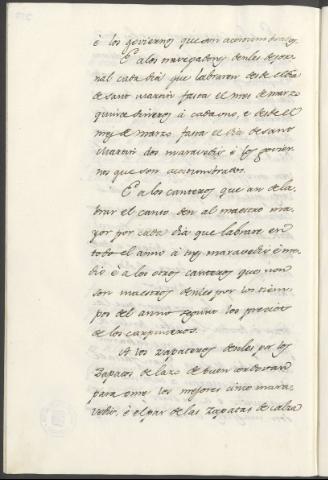 è los goviernos que son acostumbrados
E a los navegadores denles de jornal
nal cada dia que labraren desde el dia
de sant Martin fasta el mes de marzo
quince dineros à cada uno, e desde el
mes de Marzo fasta el dia de sant
Martin dos maravedis è los govier-
nos que son acostumbrados.
E a los canteros que an de la-
brar el canto den al maestro ma-
yor por cada dia que labrare en
todo el anno à tres maravedis è me-
dio è a los otros canteros que non
son maestros denles por los tiem-
pos del anno segunt los precios
de los carpinteros.
A los zapateros denles por los
zapatos de lazo de buen cordovan
para ome los mejores cinco mara-
vedis, è el par de las zapatas de calza